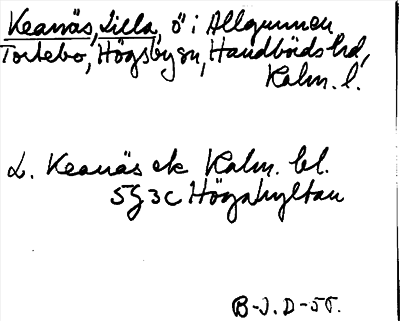 Keanäs, Lilla, ö i Allgunnen
Tortebo, Högsby sn, Handbörds hd,
Kalm. l.
L. Keanäs ek Kalm. bl.
5G3c Högahultan
B-J.D-55.